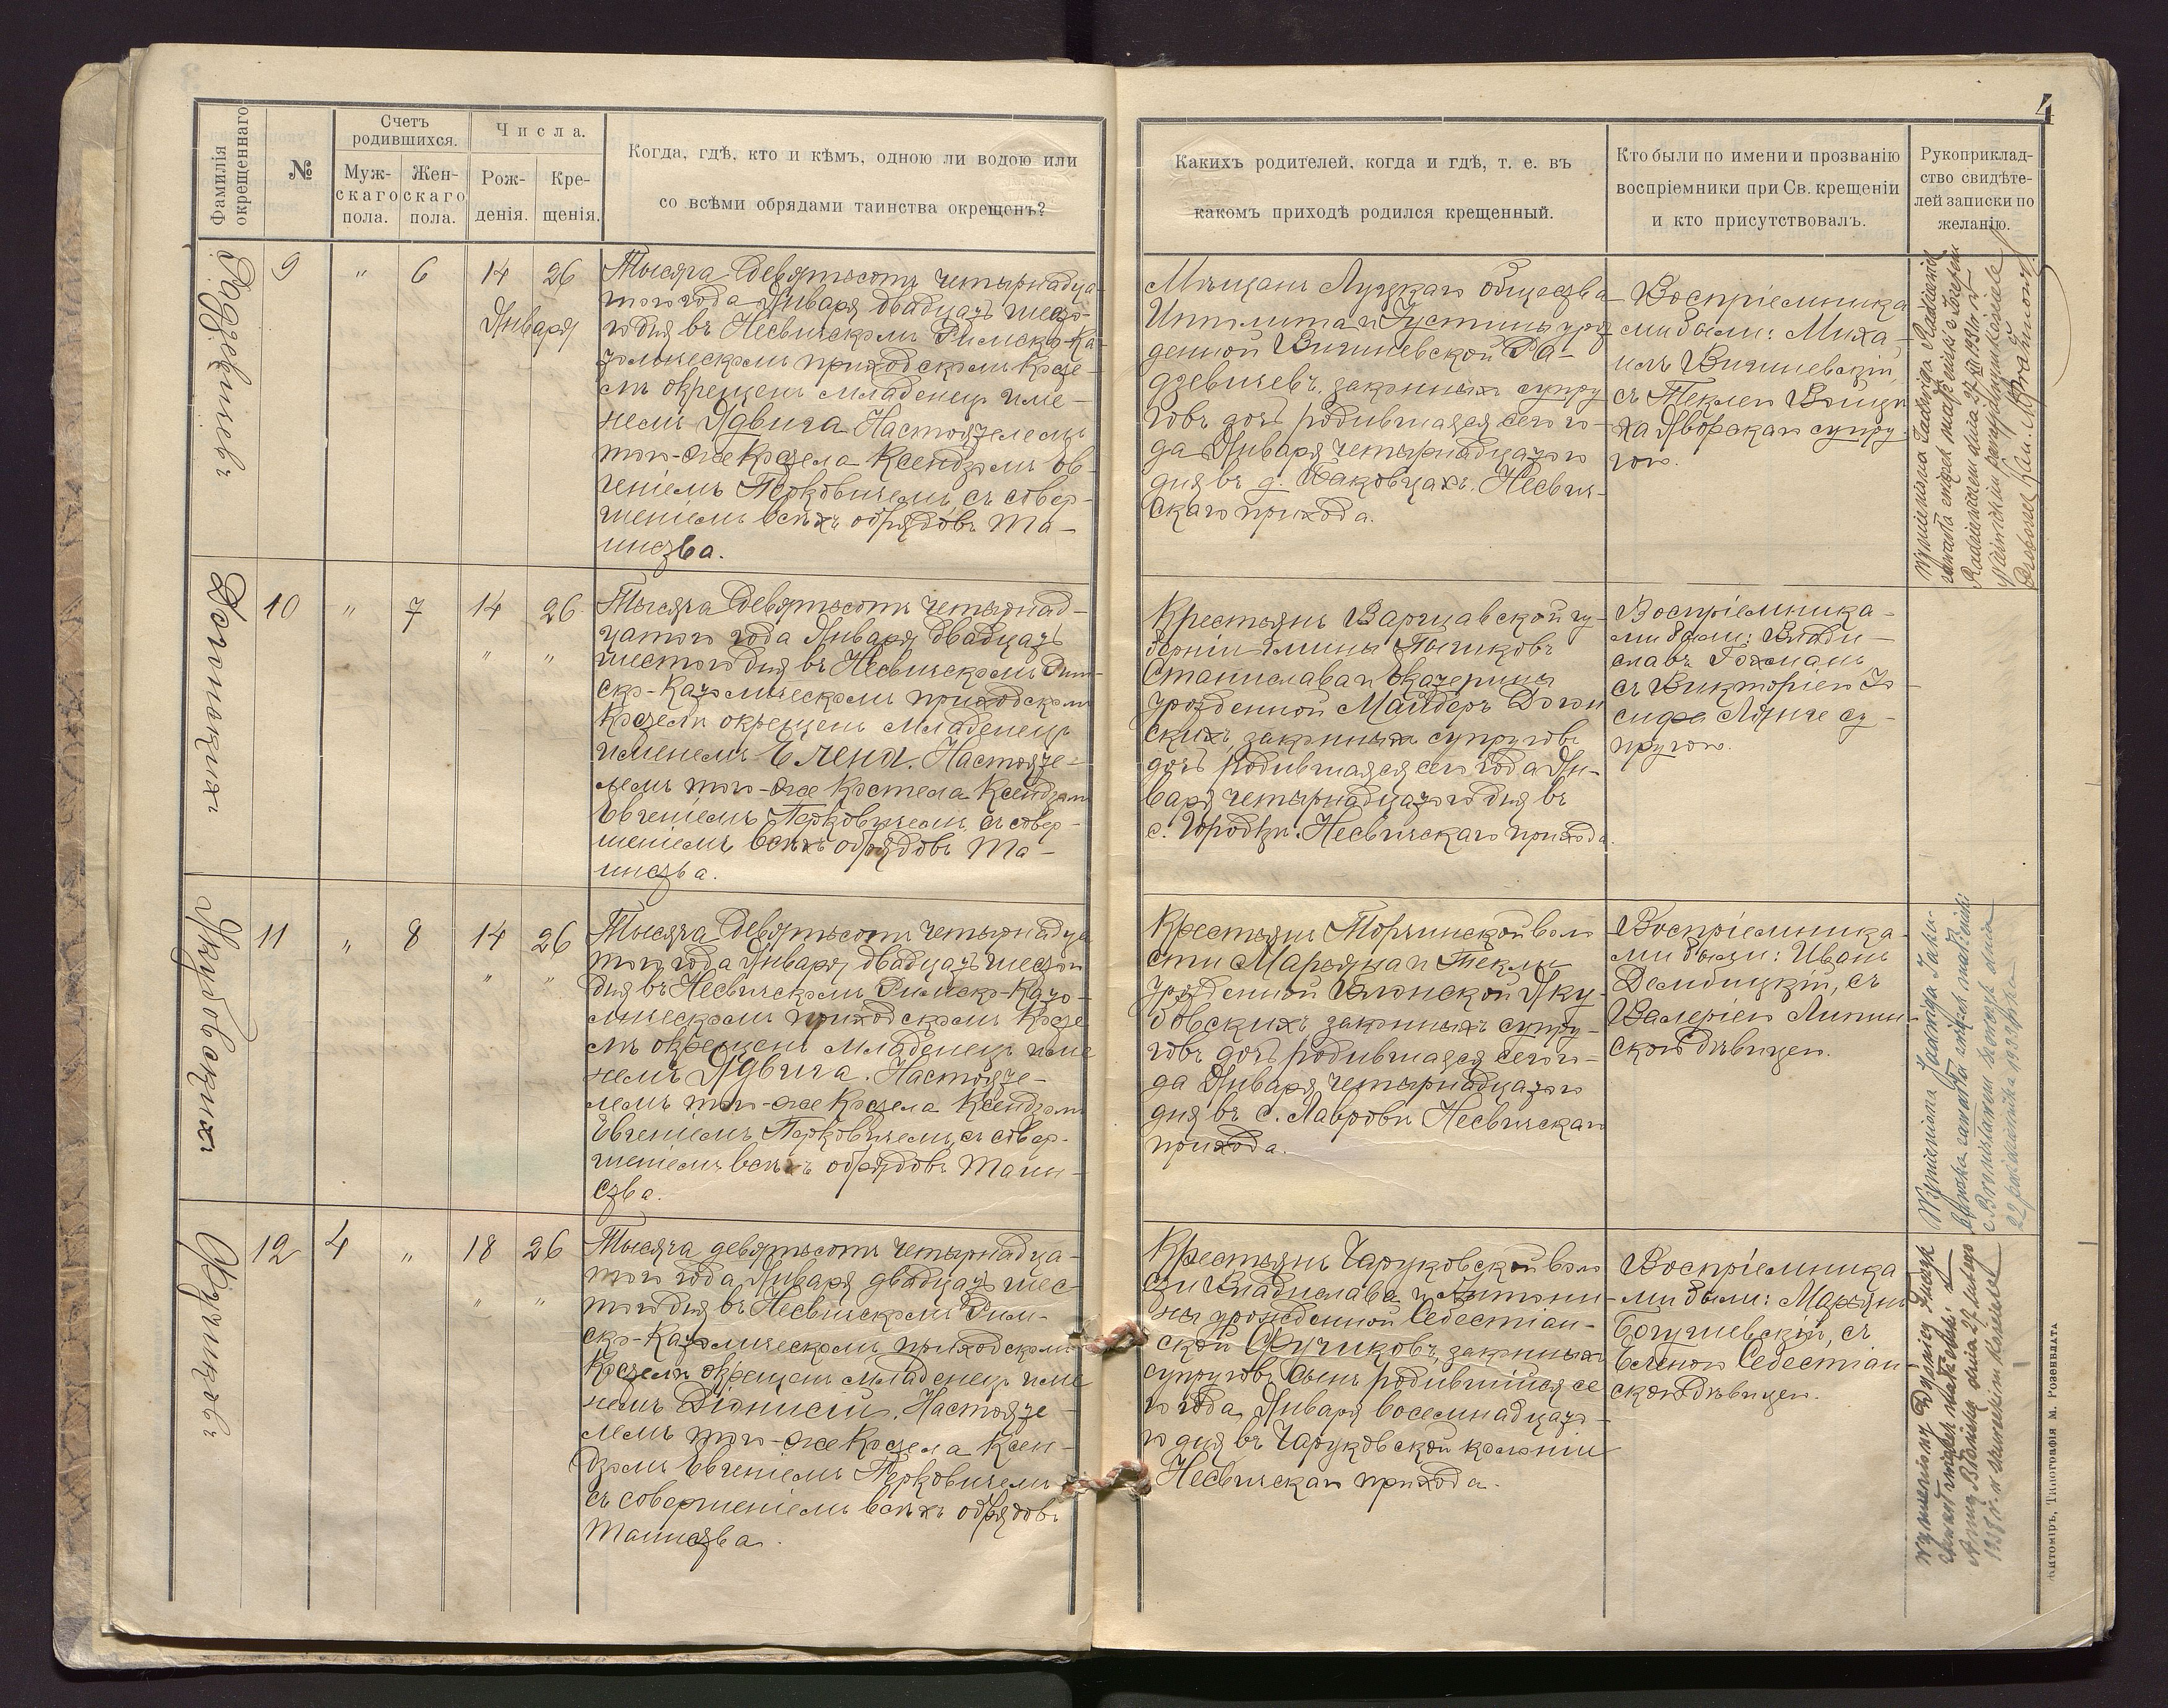 4
Фамилія окрещеннаго
№
Счетъ родившихся.
Мужскаго пола.
Женскаго пола.
Числа.
Рожденія.
Крещенія.
Когда, гдѣ, кто и кѣмъ, одною ли водою или
со всѣми обрядами таинства окрещенъ?
Какихъ родителей, когда и гдѣ, т. е. въ
какомъ приходѣ родился крещенный.
Кто были по имени и прозванію
воспріемники при Св. крещеніи
и кто присутствовалъ.
Рукоприклад-
ство свидѣте-
лей записки по
желанію.
Радзевичевъ
9 " 6 14 26
Января
Тысяча девятьсотъ четырнадца-
таго года Января двадцать шесто-
го дня въ Несвичскомъ Римско-Ка-
толическомъ приходскомъ косте-
лѣ окрещенъ младенецъ име-
немъ Ядвига Настоятелемъ
того-же Костела Ксендзомъ Ев-
геніемъ Перковичемъ, съ совер-
шеніемъ всѣхъ обрядовъ Та-
инства.
Мѣщанъ Луцкаго общества
Ипполита и Густины урож-
денной Вишневской Ра-
дзевичевъ, законныхъ супру
говъ дочь родившаяся сего го-
да Января четырнадцатого
дня въ д. Баковцахъ, Несвич-
скаго прихода.
Воспріемника
ми были: Миха-
илъ Вишневскій
съ Теклею Войцѣ
ха Яворскаго супру
гою.
Wymieniona Jadwiga Radziewicz
zawarła związek małżeński z Józefem
Догонскихъ
10 " 7 14 26
" "
Тысяча девятьсотъ четырнад-
цатого года Января двадцать
шестого дня въ Несвичскомъ Рим-
ско-Католическомъ приходскомъ
костелѣ окрещенъ младенецъ
именемъ Елена. Настояте-
лемъ того-же Костела Ксендзомъ
Евгеніемъ Перковичемъ, съ совер-
шеніемъ всѣхъ обрядовъ Та-
инства.
Крестьянъ Варшавской гу-
берніи гмины
Станислава и Екатерины
урожденной Майдеръ Догон
скихъ, законныхъ супруговъ
дочь родившаяся сего года Ян-
варя четырнадцатого дня въ
с. Городкѣ, Несвичскаго прихода.
Воспріемника-
ми были: Влади-
славъ Гохманъ
съ Викторіею Іо
сифа су-
пругою.
Якубовскихъ
11 " 8 14 26
" "
Тысяча девятьсотъ четырнадца
того года Января двадцать шестого
дня въ Несвичскомъ Римско-Като-
лическомъ приходскомъ косте
лѣ окрещенъ младенецъ име
немъ Ядвига. Настояте-
лемъ того-же Костела Ксендзомъ
Евгеніемъ Перковичемъ, съ совер-
шеніемъ всѣхъ обрядовъ Таин-
ства.
Крестьянъ Торчинской воло
сти Марьяна и Теклы
урожденной Яку-
бовскихъ законныхъ супру-
говъ дочь родившаяся сего го-
да Января четырнадцатого
дня въ с. Лавровѣ Несвичскаго
прихода.
Воспріемника-
ми были: Иванъ
Дембицкій, съ
Валеріею Липин
скою дѣвицею.
Wymieniona Jadwiga Jaku-
bowska zawarła związek małżeński
z Bronisławem dnia
22 października 1933 roku
Фручиковъ
12 4 " 18 26
" "
Тысяча девятьсотъ четырнадца-
того года Января двадцать шес-
того дня въ Несвичскомъ Рим-
ско-Католическомъ приходскомъ
Костелѣ окрещенъ младенецъ име
немъ Діонисій. Настояте-
лемъ того-же Костела Ксен-
дзомъ Евгеніемъ Перковичемъ
съ совершеніемъ всѣхъ обрядовъ
Таинства.
Крестьянъ Чаруковской воло
сти Владислава и Антони-
ны урожденной Себестіан-
ской Фручиковъ, законныхъ
супруговъ сынъ родившійся се
го года Января восемнадцато-
го дня въ Чаруковской колоніи
Несвичскаго прихода.
Воспріемника
ми были: Марьянъ
Богушевскій, съ
Еленою Себестіан-
скою дѣвицею.
Житоміръ, Типографія М. Розенблата